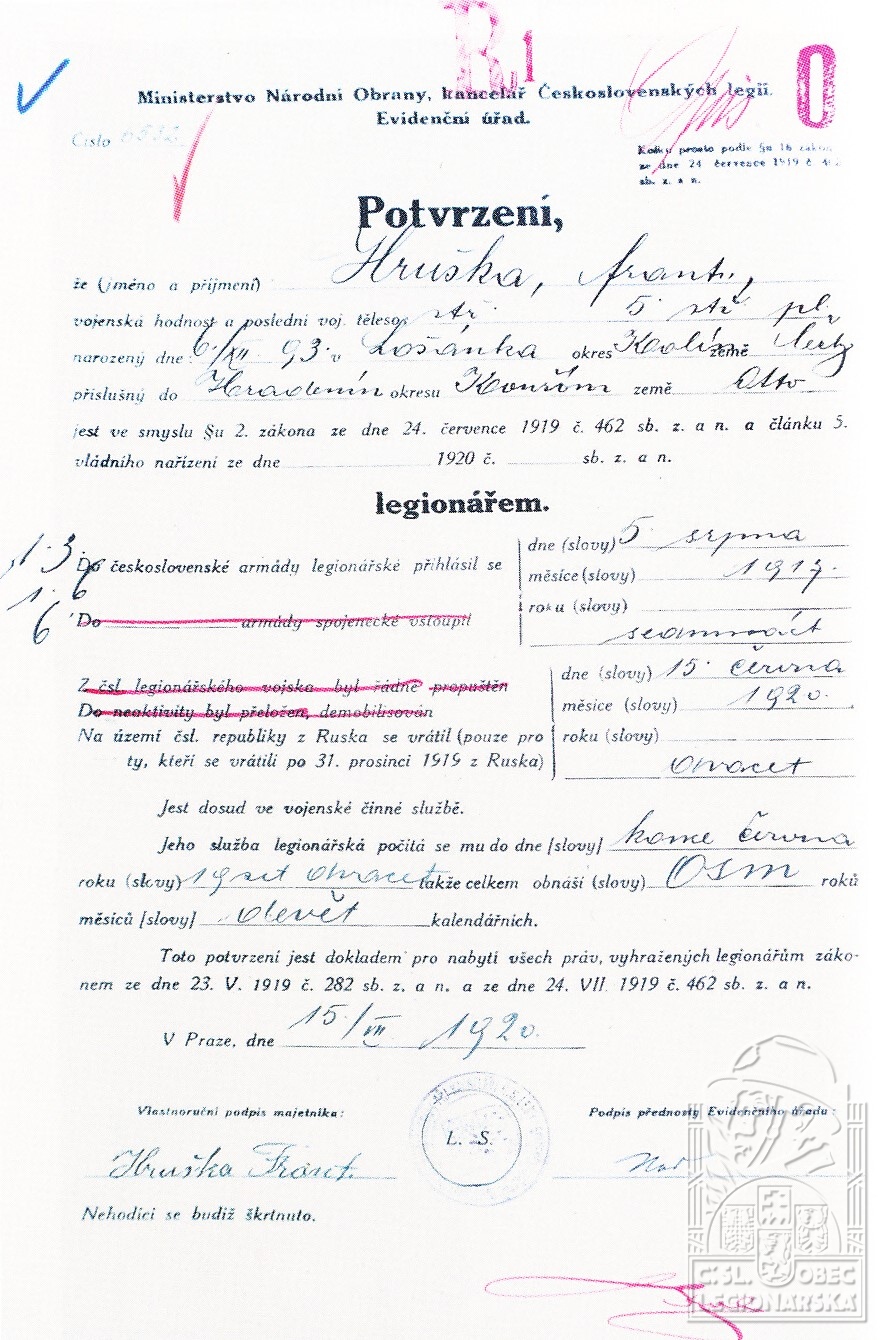 R.1
O
Ministerstvo Národní Obrany, kancelář Československých legií.
Evidenční úřad.
Číslo
Kolku prosto podle §u 18 zákona
ze dne 24 července 1919 č 462
sb. z. a n.
Potvrzení,
že (jméno a příjmení) Hruška, Frant.,
vojenská hodnost a poslední voj. těleso: stř. 5. stř. pl.
narozený dne: 6/XII. 93. v Lošánka okres Kolín země Čechy
příslušný do Hradenín okresu Kouřim země
jest ve smyslu §u 2. zákona ze dne 24. července 1919 č. 462 sb. z. a n. a článku 5.
vládního nařízení ze dne 1920 č. sb. z. a n.
legionářem.
Do československé armády legionářské přihlásil se
dne (slovy) 5. srpna
měsíce (slovy) 1917.
roku (slovy)
sedmnáct
Do armády spojenecké vstoupil
Z čsl. legionářského vojska byl řádně propuštěn
Do neaktivity byl přeložen, demobilisován
Na území čsl. republiky z Ruska se vrátil (pouze pro
ty, kteří se vrátili po 31. prosinci 1919 z Ruska)
dne (slovy) 15. června
měsíce (slovy) 1920.
roku (slovy)
dvacet
Jest dosud ve vojenské činné službě.
Jeho služba legionářská počítá se mu do dne [slovy] konce června
roku (slovy) 19set dvacet takže celkem obnáší (slovy) Osm roků
měsíců [slovy] devět kalendářních.
Toto potvrzení jest dokladem pro nabytí všech práv, vyhražených legionářům záko-
nem ze dne 23. V. 1919 č. 282 sb. z. a n. a ze dne 24. VII. 1919 č. 462 sb. z. a n.
V Praze, dne 15./VII. 1920.
Vlastnoruční podpis majetníka:
Podpis přednosty Evidenčního úřadu:
L. S.
Hruška Frant.
Nehodící se budiž škrtnuto.
ČSL. OBEC
LEGIONÁŘSKÁ